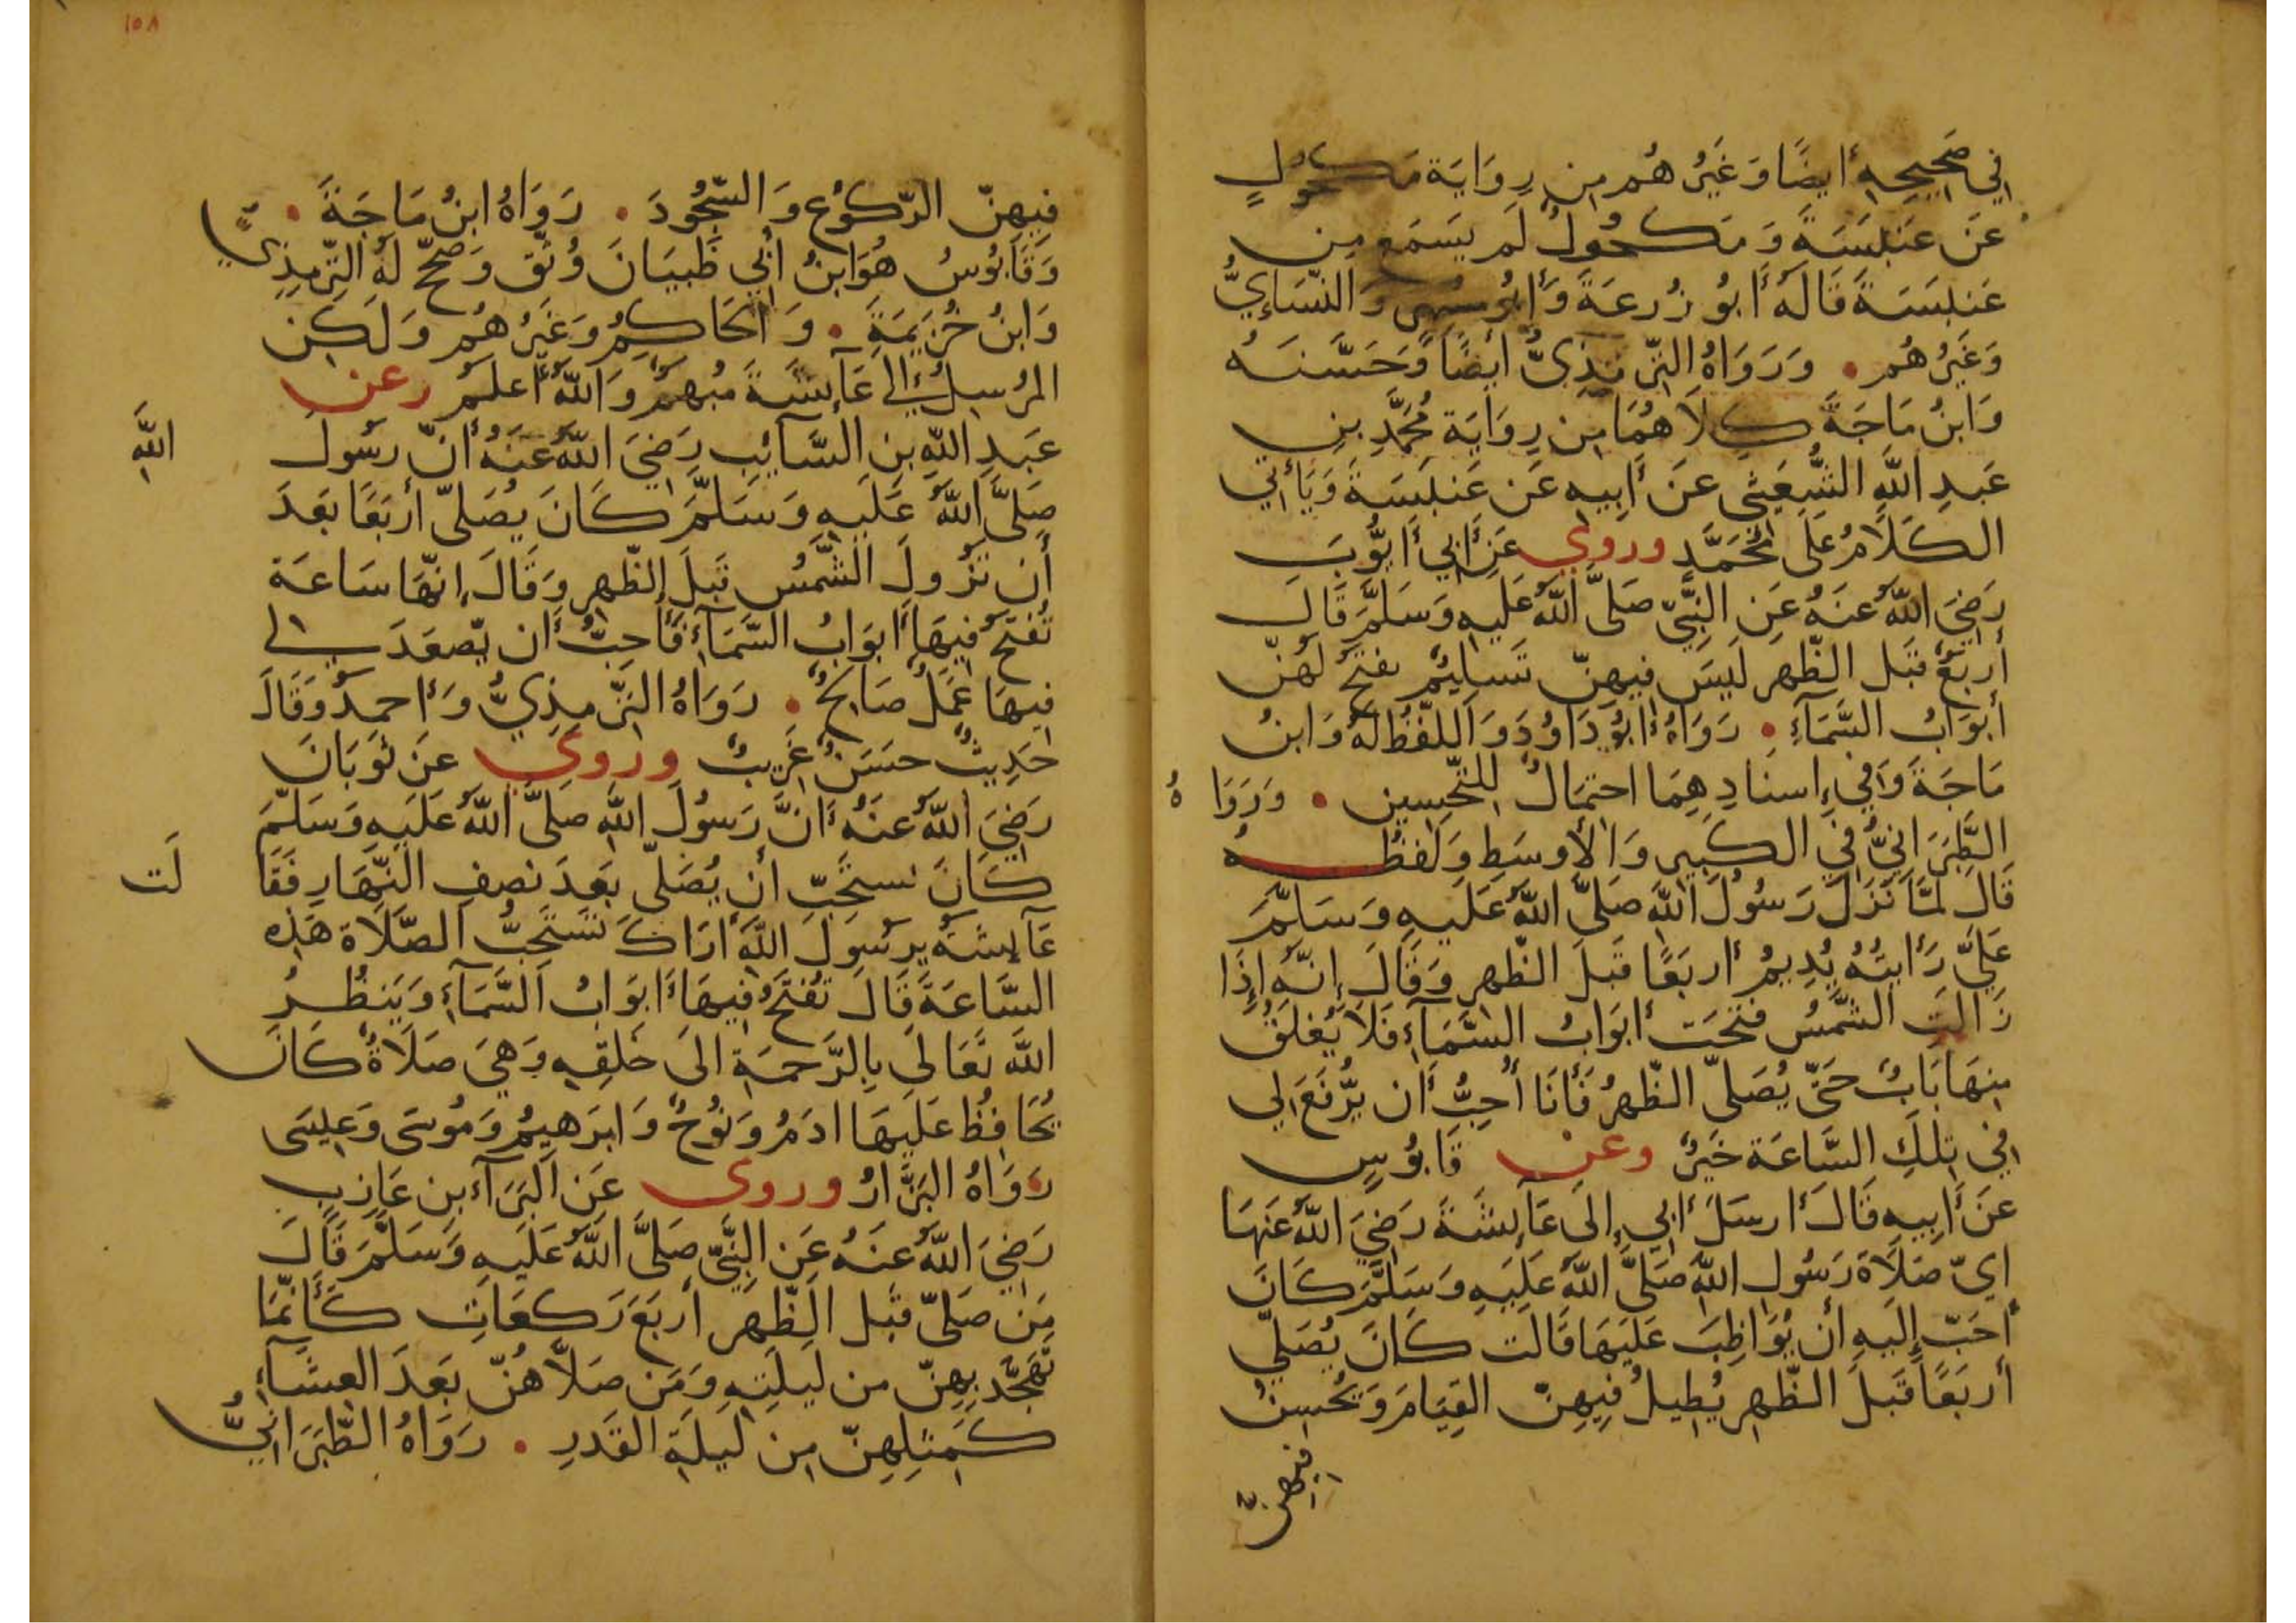 في صَحِيحِهِ أيضًا وَغَيرُهُم مِن رِوَايَة مَكحُولٍ
عَن عَنبَسَةَ وَمَكحُولٌ لَم يَسمَع مِن
عَنبَسَةَ قَالَهُ أَبُو زُرعَةَ وَأبُو مُسهِر وَالنَّسَاءِيُّ
وَغَيرُهُم • وَرَوَاهُ التِّرمِذِيُّ أيضًا وَحَسَّنَهُ
وَابنُ مَاجَةَ كِلَاهُمَا مِن رِوَايَة مُحَمَّدِ بنِ
عَبدِ اللَّهِ الشُّعَيثي عَن أَبِيهِ عَن عَنبَسَةَ وَيَأتي
الكَلَامُ عَلَى مُحَمَّدٍ وروي عَن أَبي أَيُّوبَ
رَضِيَ اللَّهُ عَنهُ عَنِ النَّبِيّ صَلَّى اللَّهُ عَلَيهِ وَسَلَّمَ قَالَ
أَربَعٌ قَبلَ الظّهرِ لَيسَ فِيهِنّ تَسلِيمٌ تفتَحُ لَهُنّ
أَبوَابُ السَّمَآءِ • رَوَاهُ أَبُو دَاوُدَ وَاللَّفظُ لَهُ وَابنُ
مَاجَةَ وَفي إِسنَادِهِمَا احتِمَالٌ لِلتَّحسِينِ • وَرَوَاهُ
الطَّبَرَانِيُّ في الكَبِيرِ وَالأَوسَطِ وَلَفظُهُ
قَالَ لَمَّا نَزَلَ رَسُولُ اللَّهِ صَلَّى اللَّهُ عَلَيهِ وَسَلَّمَ
عَلَيَّ رَأَيتُهُ يُدِيمُ أَربَعًا قَبلَ الظّهرِ وَقَالَ إِنَّهُ إِذَا
زَالَتِ الشَّمسُ فتحَت أَبوَابُ السَّمَآءِ فَلَا يُغلَقُ
مِنهَا بَابٌ حَتّى يُصَلّى الظّهرُ فَأَنَا أُحِبُّ أَن يُّرفَعَ لِي
في تِلكَ السَّاعَة خَيرٌ وعن قَابُوسٍ
عَن أَبِيهِ قَالَ أَرسَلَ أَبي إِلَى عَآئِشَةَ رَضِيَ اللَّهُ عَنهَا
ايّ صَلَاةَ رَسُولِ اللَّهِ صَلَّى اللَّهُ عَلَيهِ وَسَلَّمَ كَانَ
أَحَبّ إِلَيهِ أَن يُوَاظِبَ عَلَيهَا قَالَت كَانَ يُصَلّي
أَربَعًا قَبلَ الظّهرِ يُطِيلُ فِيهِنّ القِيَامَ وَيُحسِنُ
فِيهِنّ
١٥٨
فِيهِنّ الرّكُوعَ وَالسّجُودَ • رَوَاهُ ابنُ مَاجَةَ •
وَقَابُوسُ هُوَ ابنُ أَبي ظَبيَانَ وُثّقَ وَصَحّحَ لَهُ التِّرمِذِيُّ
وَابنُ خُزَيمَةَ • وَالحَاكِمُ وَغَيرُهُم وَلَكِن
المُرسِلُ إِلى عَآئِشَةَ مُبهَمٌ وَاللَّهُ أَعلَمُ وعن
عَبدِ اللَّهِ بنِ السَّآئِبِ رَضِيَ اللَّهُ عَنهُ أَنّ رَسُولَ اللَّهِ
صَلَّى اللَّهُ عَلَيهِ وَسَلَّمَ كَانَ يُصَلّي أَربَعًا بَعدَ
أَن تَزُولَ الشَّمسُ قَبلَ الظّهرِ وَقَالَ إِنّهَا سَاعَة
تُفتَحُ فِيهَا أَبوَابُ السَّمَآءِ فَأُحِبُّ أَن يّصعَدَ لي
فِيهَا عَمَلٌ صَالِحٌ • رَوَاهُ التِّرمِذِيُّ وَأَحمَدُ وَقَالَ
حَدِيثٌ حَسَنٌ غَرِيبٌ وروي عَن ثَوبَانَ
رَضِيَ اللَّهُ عَنهُ أَنَّ رَسُولَ اللَّهِ صَلَّى اللَّهُ عَلَيهِ وَسَلَّمَ
كَانَ يَستَحِبّ أَن يُصَلّي بَعدَ نِصفِ النّهَارِ فَقَالَت
عَآئِشَةُ يرَسُولَ اللَّهِ أَرَاكَ تَستَحِبُّ الصَّلَاةَ هَذِهِ
السَّاعَةَ قَالَ تُفتَحُ فِيهَا أَبوَابُ السَّمَآءِ وَيَنظُرُ
اللَّهُ تَعَالَى بِالرَّحمَةِ الَى خَلقِهِ وَهِيَ صَلَاةٌ كَانَ
يُحَافِظُ عَلَيهَا ادَمُ وَنُوحٌ وَابرَهِيمُ وَمُوسَى وَعِيسَى
رَوَاهُ البَزَّارُ وروى عَن البَرَآء بنِ عَازِبٍ
رَضِيَ اللَّهُ عَنهُ عَن النَّبِيّ صَلَّى اللَّهُ عَلَيهِ وَسَلَّمَ قَالَ
مَن صَلّى قَبلَ الظّهرِ أَربَعَ رَكعَاتٍ كَأَنّمَا
تَهَجَّدَ بِهِنّ من لَيلَتِهِ وَمَن صَلّاهُنّ بَعدَ العِشَآءِ
كَمِثلِهِنّ مِن لَيلَةِ القَدرِ • رَوَاهُ الطَّبَرَانِيُّ